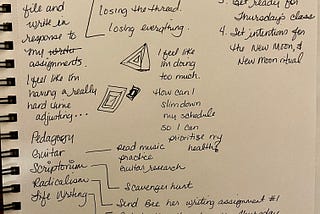 file and
write in
response to
my write
assignments.
I feel like I'm
having a really
hard time
adjusting...
Pedagogy
Guitar
Scriptorium
Radicalism
Life Writing
losing the thread.
losing everything.
I feel like
I'm doing
too much.
How can I
slim down
my schedule
so I can
prioritise my
health?
read music
practice
guitar research
Scavenger hunt
Send Bee her writing assignment #1
Thursday
3. Get ready for
Thursday's class
4. Set intentions for
the New Moon, &
New Moon ritual